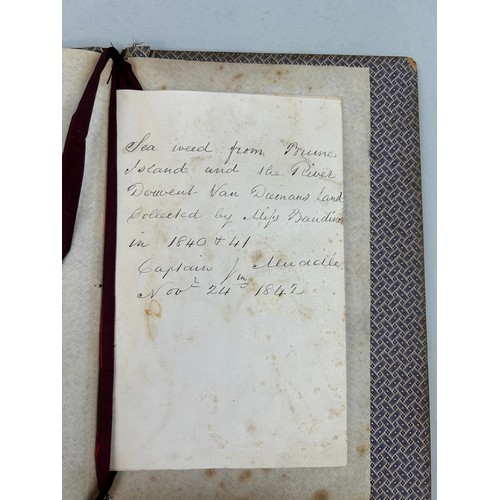 Sea weed from Brune
Island and the River
Derwent Van Diemans Land
Collected by Miss
in 1840 & 41
Captain Jm Muddle
Novr 24th 1842